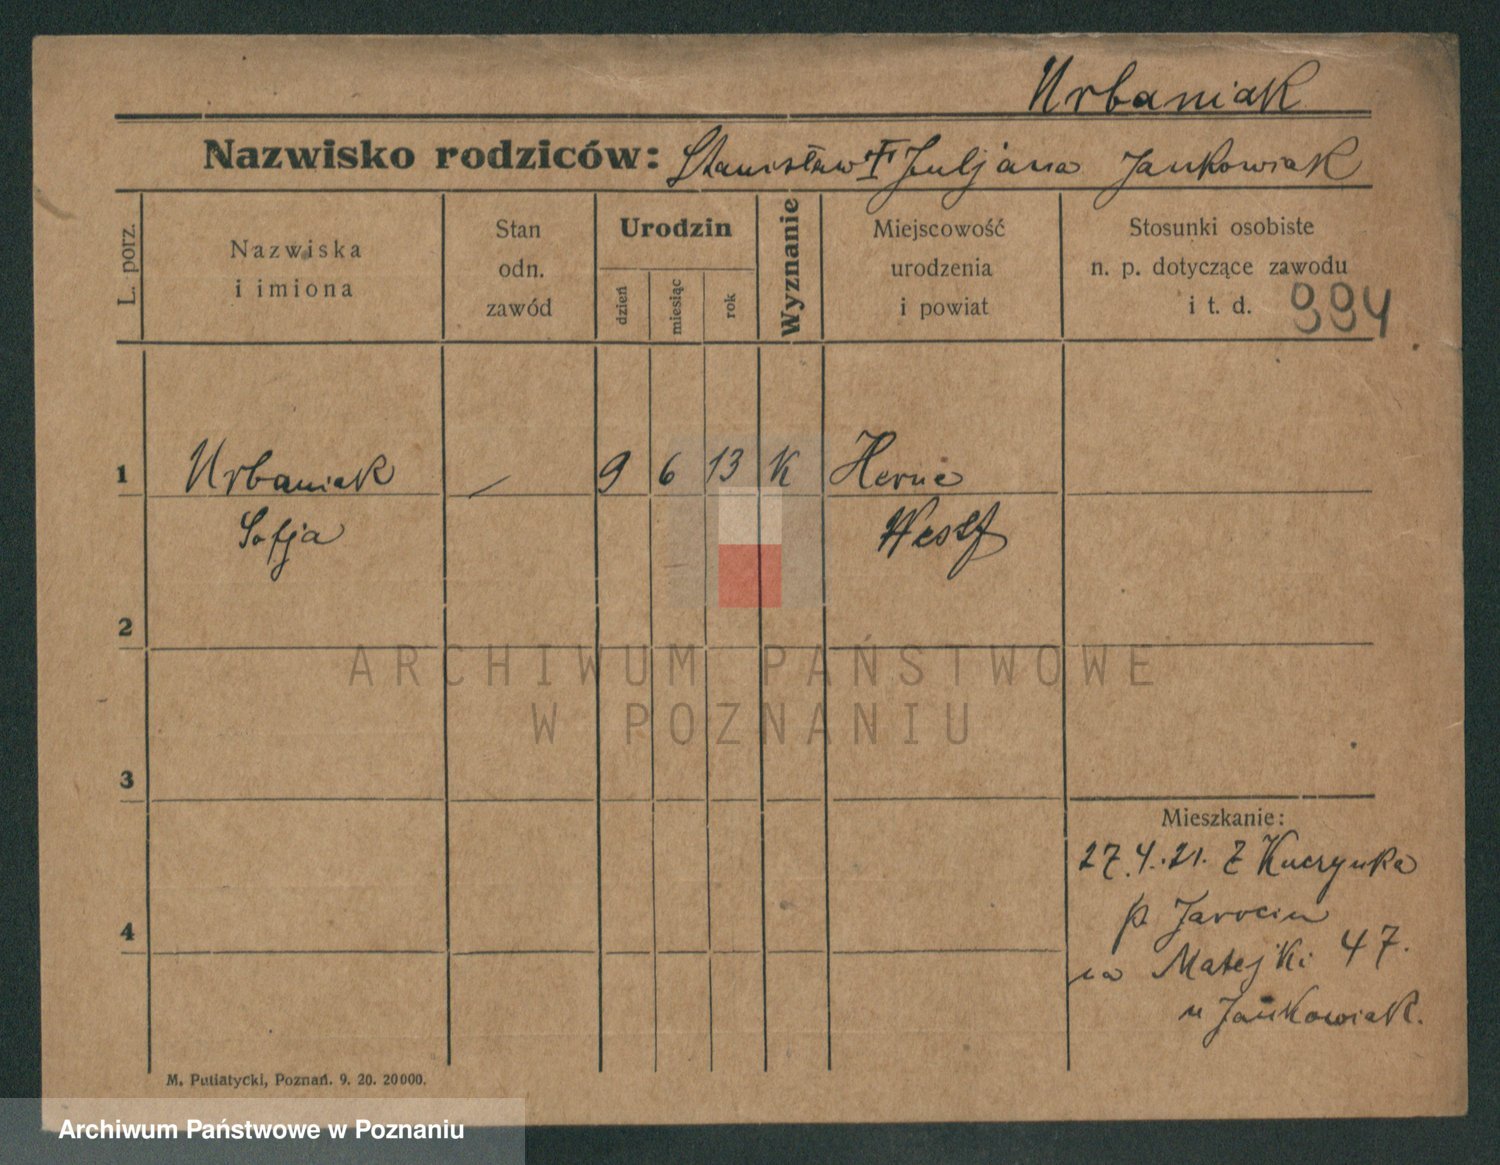 Urbaniak
Nazwisko rodziców: Stanisław Juljana Jankowiak
L. porz.
Nazwiska
i imiona
Stan
odn.
zawód
Urodzin
dzień
miesiąc
rok
Wyznanie
Miejscowość
urodzenia
i powiat
Stosunki osobiste
n. p. dotyczące zawodu
i t. d. 994
1 Urbaniak — 9 6 13 K Herne
Sofja Westf
2
ARCHIWUM PAŃSTWOWE
W POZNANIU
3
Mieszkanie:
27.4.21. Z Kuczynka
p. Jarocin
na Matejki 47.
u Jankowiak.
4
M. Putiatycki, Poznań. 9. 20. 20000.
Archiwum Państwowe w Poznaniu